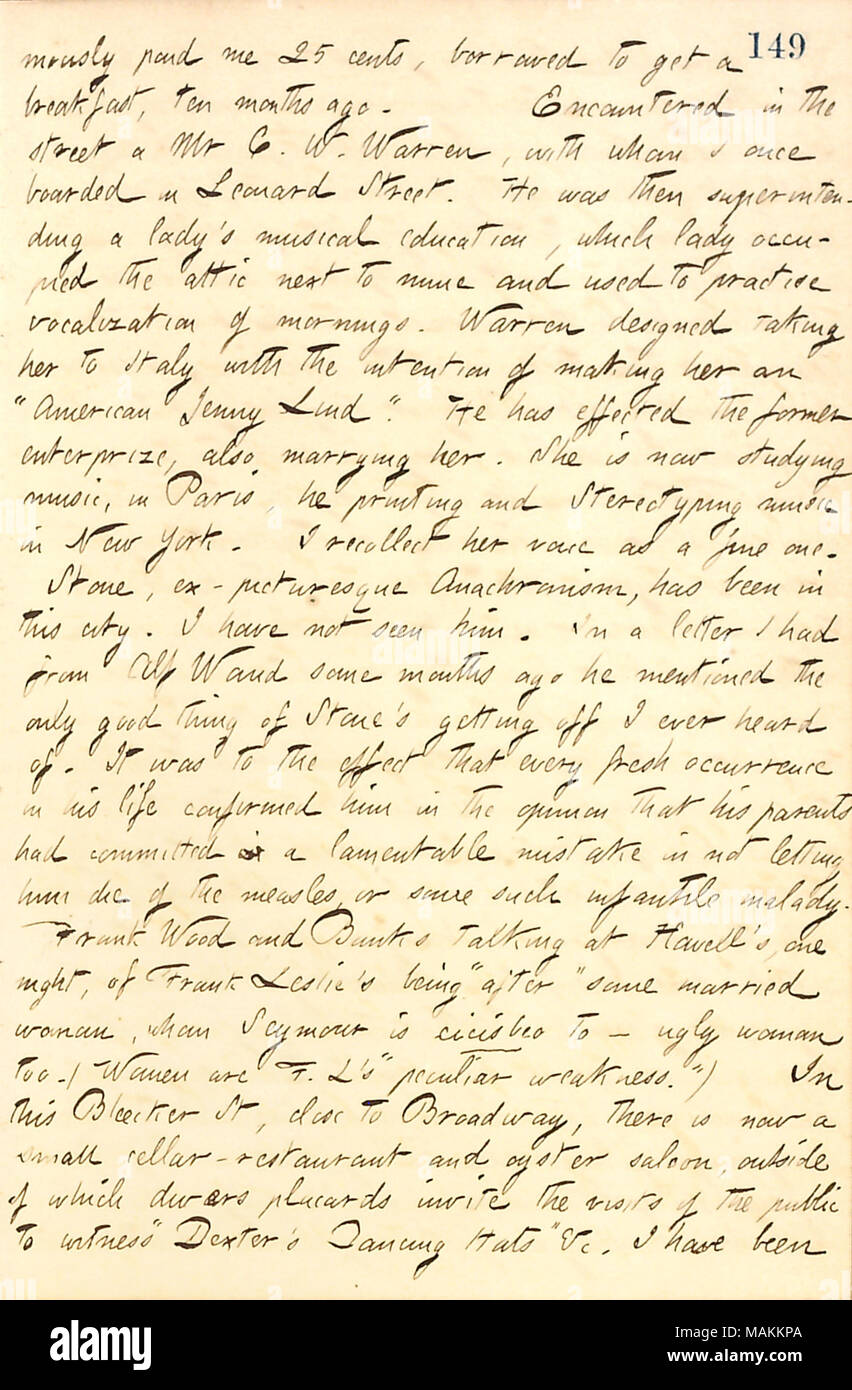 149
mously paid me 25 cents, borrowed to get a
breakfast, ten months ago. Encountered in the
street a Mr C. W. Warren, with whom I once
boarded in Leonard Street. He was then superinten-
ding a lady's musical education, which lady occu-
pied the attic next to mine and used to practise
vocalization of mornings. Warren designed taking
her to Italy with the intention of making her an
"American Jenny Lind." He has effected the former
enterprize, also marrying her. She is now studying
music, in Paris, he printing and stereotyping music
in New York. I recollect her voice as a fine one.
Stone, ex-picturesque Anachronism, has been in
this city. I have not seen him. In a letter I had
from Alf Waud some months ago he mentioned the
only good thing of Stone's getting off I ever heard
of. It was to the effect that every fresh occurrence
in his life confirmed him in the opinion that his parents
had committed a lamentable mistake in not letting
him die of the measles, or some such infantile malady.
Frank Wood and Banks talking at Havell's, one
night, of Frank Leslie's being "after" some married
woman, whom Seymour is cicisbeo to — ugly woman
too. (Women are F. L's "peculiar weakness.") In
this Bleecker St, close to Broadway, there is now a
small cellar-restaurant and oyster saloon, outside
of which divers placards invite the visits of the public
to witness "Dexter's Dancing Hats" &c. I have been
alamy
Image ID: MAKKPA
www.alamy.com